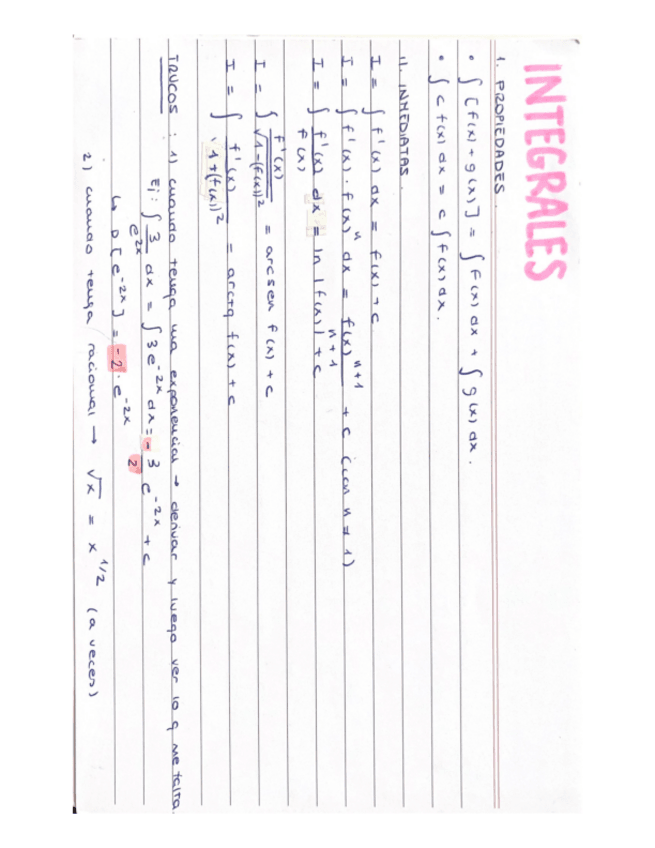 INTEGRALES
1. PROPIEDADES.
• ∫ [f(x) + g(x)] = ∫ f(x) dx + ∫ g(x) dx.
• ∫ c f(x) dx = c ∫ f(x) dx.
11. INMEDIATAS.
I = ∫ f'(x) dx = f(x) + c
I = ∫ f'(x) · f(x)^n dx = f(x)^(n+1) / (n+1) + c (con n ≠ 1)
I = ∫ f'(x) / f(x) dx = ln |f(x)| + c
I = ∫ f'(x) / √(1-(f(x))²) = arcsen f(x) + c
I = ∫ f'(x) / (1+(f(x))²) = arctg f(x) + c
TRUCOS: 1) cuando tenga una exponencial → derivar y luego ver lo q me falta.
Ej: ∫ 3 / e^(2x) dx = ∫ 3 e^(-2x) dx = - 3/2 e^(-2x) + c
↳ D [e^(-2x)] = -2 · e^(-2x)
2) cuando tenga racional → √x = x^(1/2) (a veces)